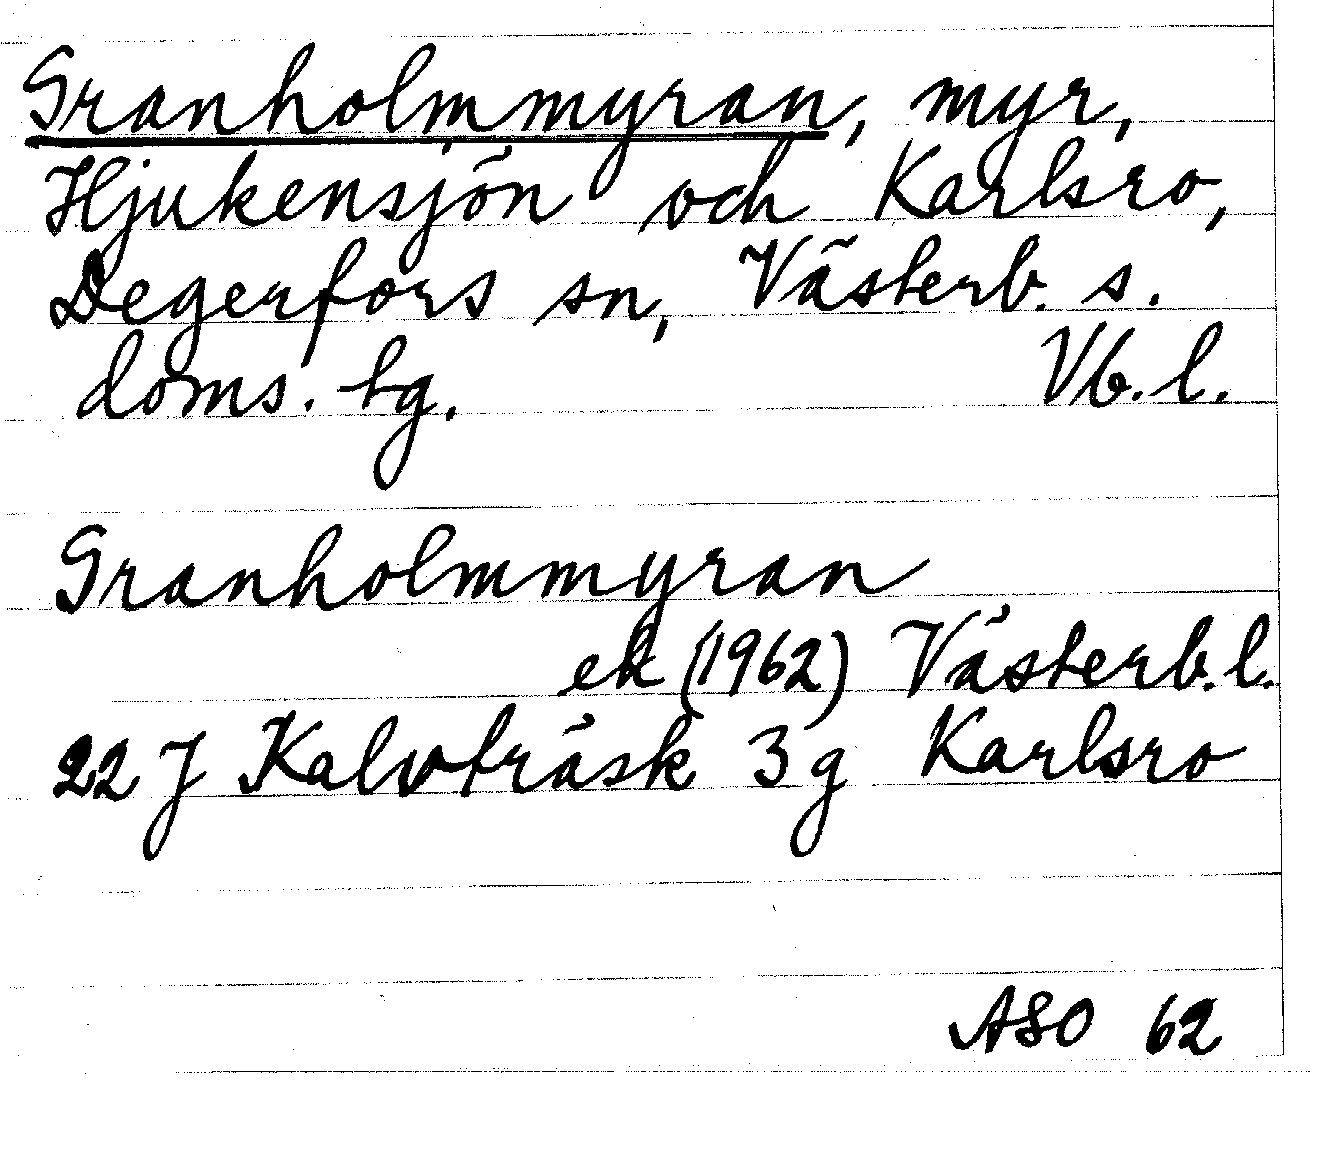 Granholmmyran, myr,
Hjukensjön och Karlsro,
Degerfors sn, Västerb. s.
doms. tg. Vb. l.
Granholmmyran
ek (1962) Västerb. l.
22 J Kalvträsk 3 g Karlsro
ASO 62